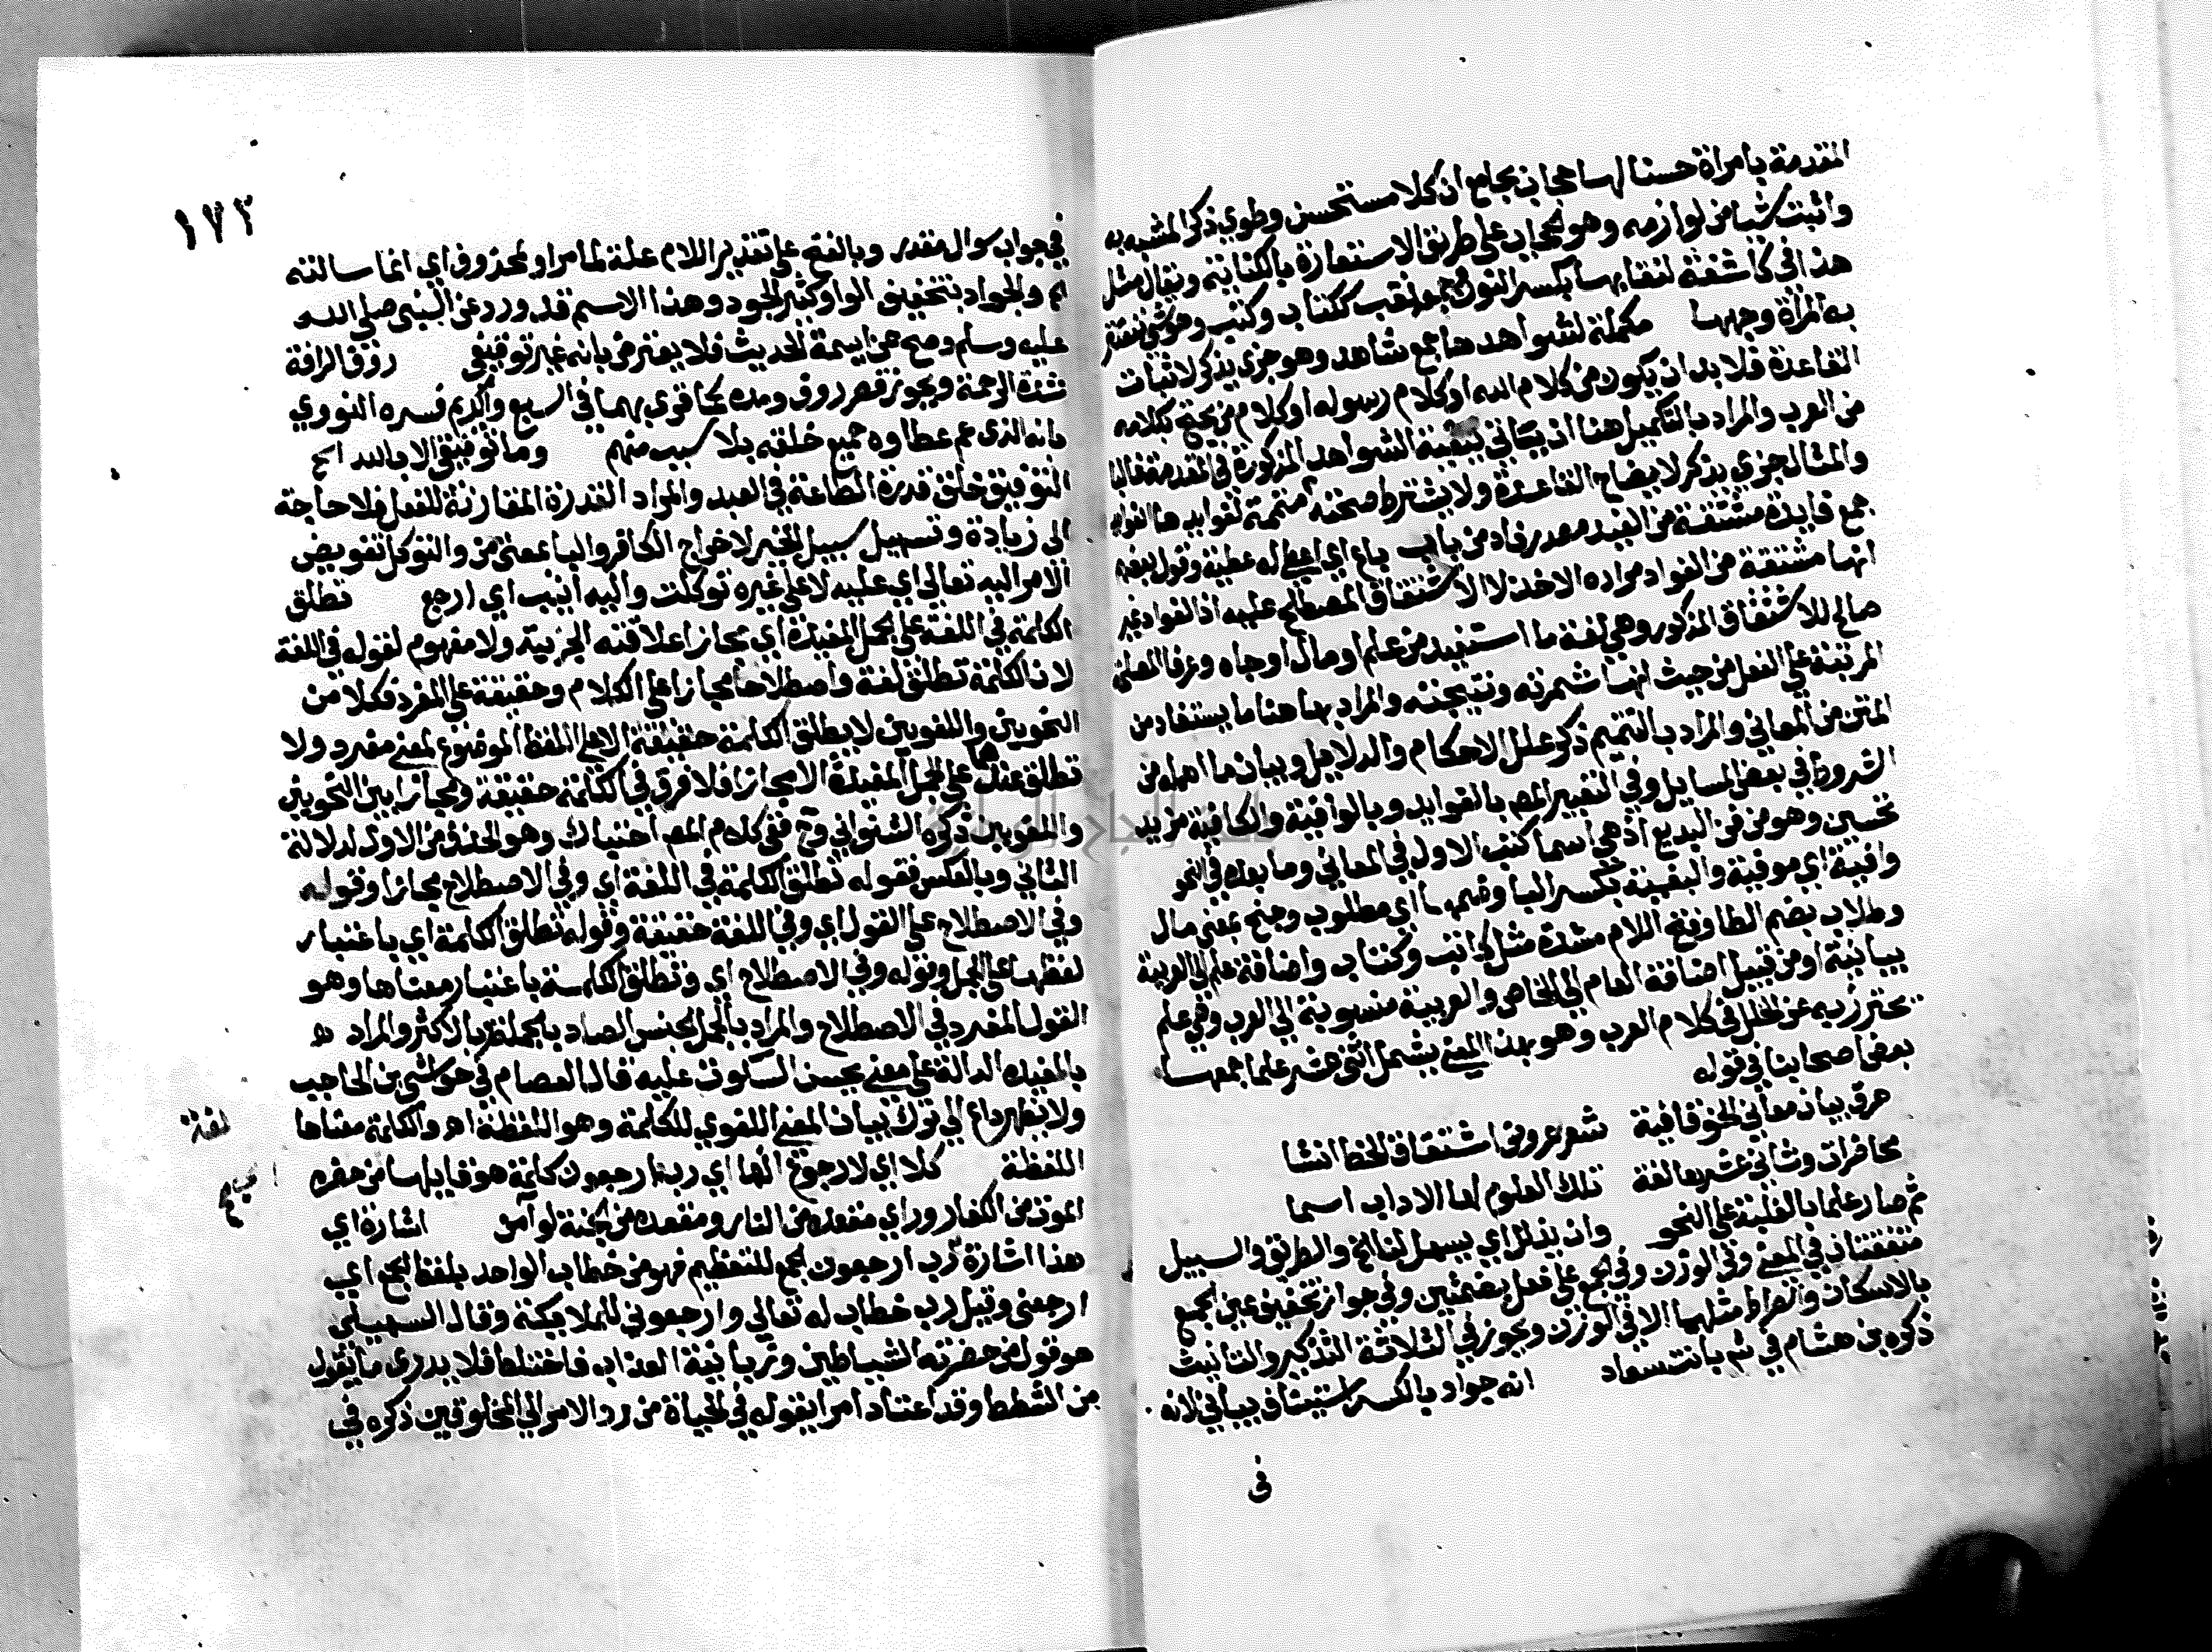 المقدمة بامراة حسنا لها حجاب بجامع ان كلا مستحسن وطوي ذكر المشبه به
واثبت شيا من لوازمه وهو الحجاب على طريق الاستعارة بالكناية ويقال مثل
هذا في كاشفة لنقابها بكسر النون جمعه نقب ككتاب وكتب وهو شي تنتقب
به المراة وجهها مكملة لشواهدها جمع شاهد وهو جزي يذكر لاثبات
القاعدة فلا بد ان يكون من كلام الله او كلام رسوله او كلام من يحتج بكلامه
من العرب والمراد بالتكميل هنا ان يتاتي ببقية الشواهد المذكورة في المقدمة غالبا
والمثال جزي يذكر لايضاح القاعدة ولا يشترط صحته متممة لفوايدها الفوايد
جمع فايدة مشتقة من الفيد مصدر فاد من باب باع اي اعطي له عطية وقول بعضهم
انها مشتقة من الفواد مراده الاخذ لا الاشتقاق المصطلح عليه اذ الفواد غير
صالح للاشتقاق المذكور وهي لغة ما استفيد من علم او مال او جاه وعرفا المصلحة
المرتبة على الفعل من حيث انها ثمرته ونتيجته والمراد بها هنا ما يستفاد من
المتن من المعاني والمراد بالتتميم ذكر علل الاحكام والدلايل وبيان ما اهمله من
الشروط في بعض المسايل وفي التعبير المص بالفوايد وبالوافية والكافية مزيد
تحسين وهو من فن البديع اذ هي اسما كتب الاول في المعاني وما بعده في النحو
وافية اي موفية والبغية بكسر البا وضمها اي مطلوب وجنح بمعني مال
وطلاب بضم الطا وفتح اللام مشددة مثل كاتب وكتاب واضافة علم الى العربية
بيانية او من قبيل اضافة العام الى الخاص والعربية منسوبة الى العرب وهي علم
يحترز به عن الخلل في كلام العرب وهو بهذا المعني يشمل اثنى عشر علما جمعها
بعض اصحابنا في قوله
صرف بيان معاني النحو قافية شعر عروض اشتقاق الخط انشا
محاضرات وثاني عشرها لغة تلك العلوم لها الاداب اسما
ثم صار علما بالغلبة على النحو وان يذلل اي يسهل لنا الخ والطريق والسبيل
متفقتان في المعني وفي الوزن وفي الجمع على فعل بضمتين وفي جواز تخفيف عين الجمع
بالاسكان والصراط مثلهما الا في الوزن ويجوز في الثلاثة التذكير والتانيث
ذكره بن هشام في شرح بانت سعاد انه جواد بالكسر استيناف بياني لانه
في
١٧٣
في جواب سوال مقدر وبالفتح على تقدير اللام علة لما مر او لمحذوف اي انما سالته
لم والجواد بتخفيف الواو كثير الجود وهذا الاسم قد ورد عن النبي صلى الله
عليه وسلم وصح من ايمة الحديث فلا يعترض بانه غير توقيفي رؤف الرافة
شدة الرحمة ويجوز قصر رؤف ومده كما قري بهما في السبع والكريم فسره النووي
بانه الذي عم عطاوه جميع خلقه بلا سبب منهم وما توفيقي الا بالله الخ
التوفيق خلق قدرة الطاعة في العبد والمراد القدرة المقارنة للفعل فلا حاجة
الى زيادة وتسهيل سبيل الخير لاخراج الكافر والبا بمعني من والتوكل تفويض
الامر اليه تعالى اي عليه لا على غيره توكلت واليه انيب اي ارجع تطلق
الكلمة في اللغة على الجمل المفيدة اي مجازا علاقته الجزيية ولا مفهوم لقوله في اللغة
لان الكلمة تطلق لغة واصطلاحا مجازا على الكلام وحقيقة على المفرد فكلا من
النحويين واللغويين لا يطلق الكلمة حقيقة الا على اللفظ الموضوع لمعني مفرد ولا
تطلق عندهما على الجمل المفيدة الا مجازا فلا فرق في الكلمة حقيقة ومجازا بين النحويين
واللغويين ذكره الشنواني وح ففي كلام المص احتباك وهو الحذف من الاول لدلالة
الثاني وبالعكس فقوله تطلق الكلمة في اللغة اي وفي الاصطلاح مجازا وقوله
وفي الاصطلاح على القول اي وفي اللغة حقيقة وقوله تطلق الكلمة اي باعتبار
لفظها على الجمل وقوله وفي الاصطلاح اي وتطلق الكلمة باعتبار معناها وهو
القول المفرد في الاصطلاح والمراد بالجمل الجنس الصادق بالجملة وبالاكثر والمراد
بالمفيدة الدالة على معني يحسن السكوت عليه قال العصام في حواشي بن الحاجب
ولا يظهر داع الى ترك بيان المعني اللغوي للكلمة وهو اللفظة اهـ والكلمة معناها لغة
اللفظة كلا اي لا رجوع انها اي رب ارجعون كلمة هو قايلها من حضره
الموت من الكفار وراي مقعده من النار ومقعده من الجنة لو آمن اشارة اي
هذا اشارة رب ارجعون الجمع للتعظيم فهو من خطاب الواحد بلفظ الجمع اي
ارجعني وقيل رب خطاب له تعالى وارجعوني للملايكة وقال السهيلي
هو قول من حضرته الشياطين وزبانية العذاب فاختلط فلا يدري ما يقول
من الشطط وقد اعتاد امرا يقوله في الحياة من رد الامر الى المخلوقين ذكره في